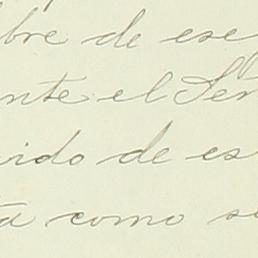 bre de ese
ente el Señ
ido de es
ta como se